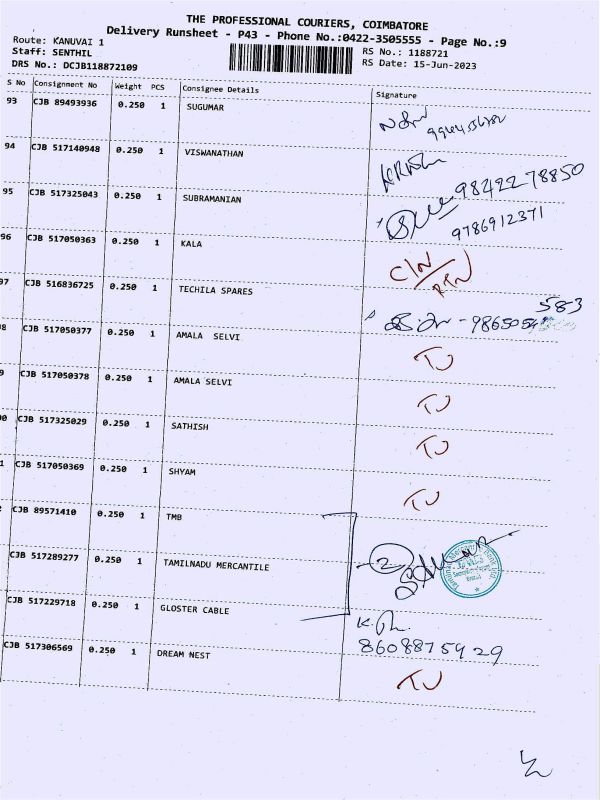 THE PROFESSIONAL COURIERS, COIMBATORE
Delivery Runsheet - P43 - Phone No.:0422-3505555 - Page No.:9
Route: KANUVAI 1
RS No.: 1188721
Staff: SENTHIL
RS Date: 15-Jun-2023
DRS No.: DCJB118872109
S No Consignment No Weight PCS Consignee Details Signature
93 CJB 89493936 0.250 1 SUGUMAR
94 CJB 517140948 0.250 1 VISWANATHAN
9842278850
95 CJB 517325043 0.250 1 SUBRAMANIAN
9786912371
96 CJB 517050363 0.250 1 KALA
C/N
RTN
97 CJB 516836725 0.250 1 TECHILA SPARES
583
8 CJB 517050377 0.250 1 AMALA SELVI TU
9 CJB 517050378 0.250 1 AMALA SELVI TU
00 CJB 517325029 0.250 1 SATHISH TU
1 CJB 517050369 0.250 1 SHYAM TU
CJB 89571410 0.250 1 TMB
2
CJB 517289277 0.250 1 TAMILNADU MERCANTILE
CJB 517229718 0.250 1 GLOSTER CABLE
8608875929
CJB 517306569 0.250 1 DREAM NEST TU